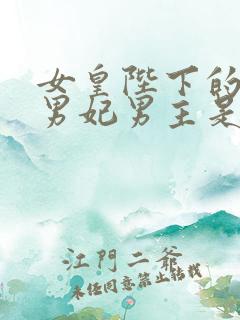 女皇陛下的
男妃男主是
江門二爺
未经同意禁止转载